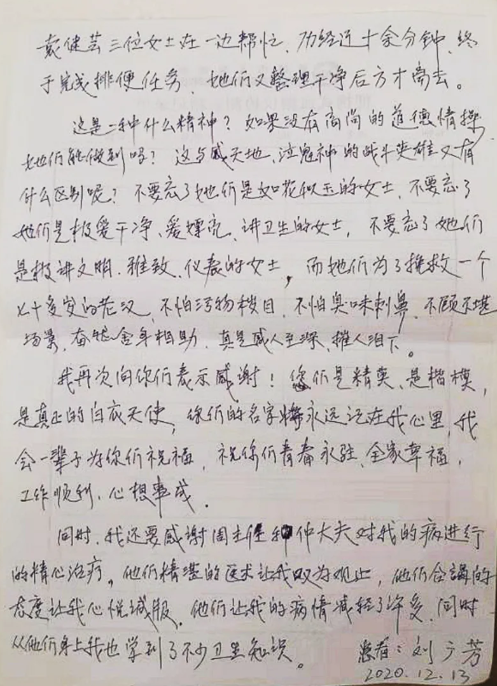 袁健芸三位女士在一边帮忙、历经近十余分钟,终
于完成排便任务,她们又整理干净后方才离去。
这是一种什么精神?如果没有高尚的道德情操
她们能做到吗?这与感天地、泣鬼神的战斗英雄又有
什么区别呢?不要忘了她们是如花似玉的女士,不要忘了
她们是极爱干净、爱漂亮、讲卫生的女士,不要忘了她们
是极讲文明、雅致、仪表的女士,而她们为了挽救一个
七十多岁的老汉,不怕污物梭目、不怕臭味刺鼻、不顾不堪
场景,奋然舍身相助,真是感人至深、摧人泪下。
我再次向你们表示感谢!您们是精英、是楷模,
是真正的白衣天使,你们的名字将永远记在我心里,我
会一辈子为你们祝福,祝你们青春永驻、全家幸福,
工作顺利、心想事成.
同时,我还要感谢周主任和仲大夫对我的病进行
的精心治疗。他们精湛的医术让我叹为观止,他们合謫的
态度让我心悦诚服。他们让我的病情减轻了许多,同时
从他们身上我也学到了不少卫生知识。
患者:刘广芳
2020.12.13